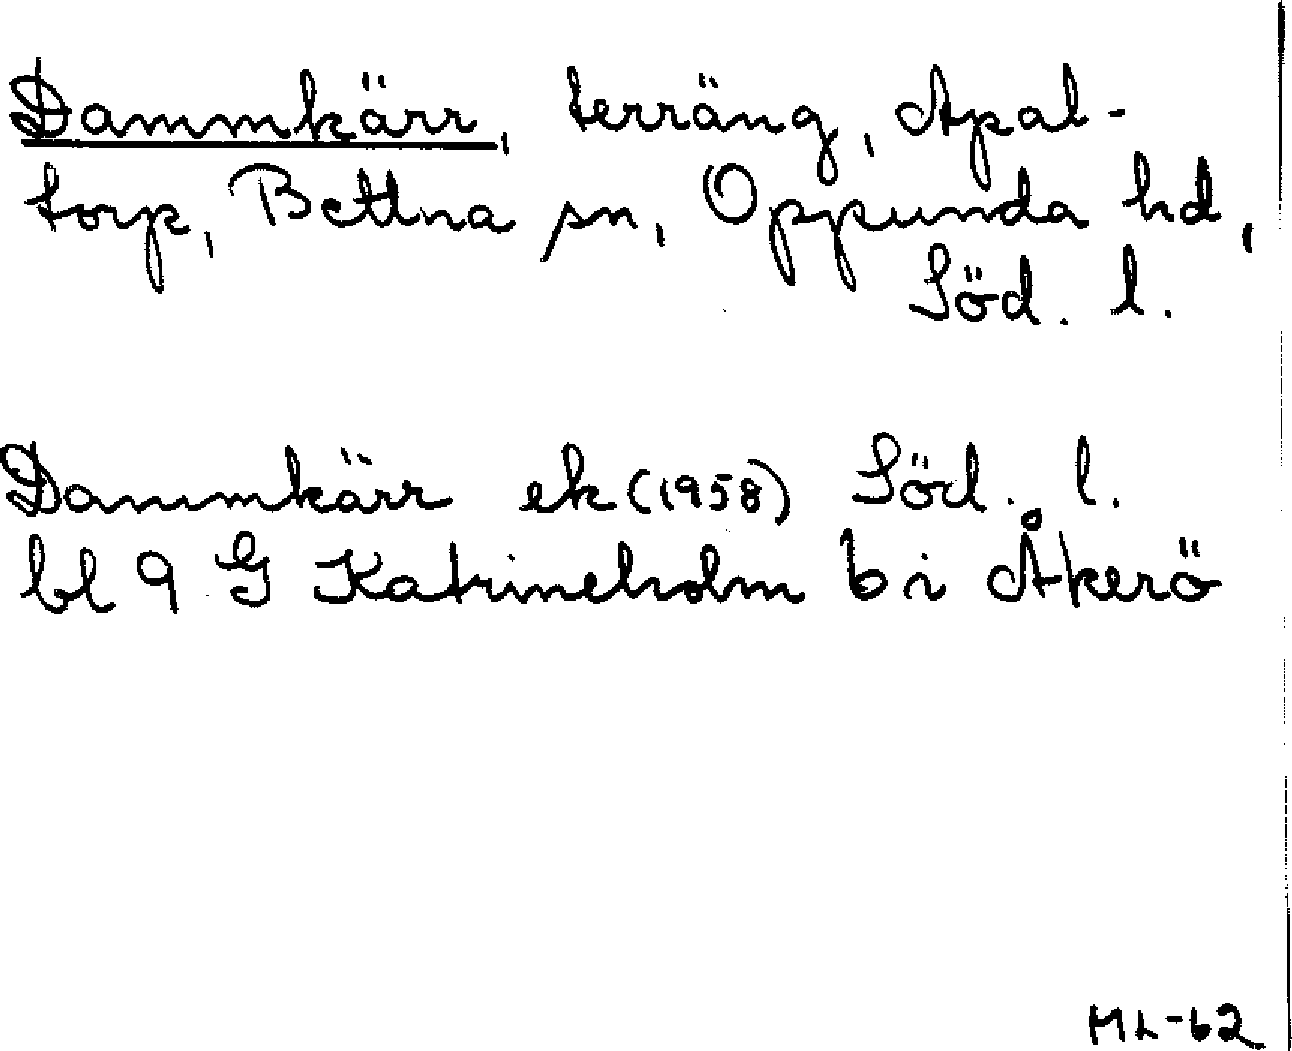 Dammkärr, terräng, Apal-
torp, Bettna sn, Oppunda hd,
Söd. l.
Dammkärr ek (1958) Söd. l.
bl 9 G Katrineholm b i Åkerö
ML-62